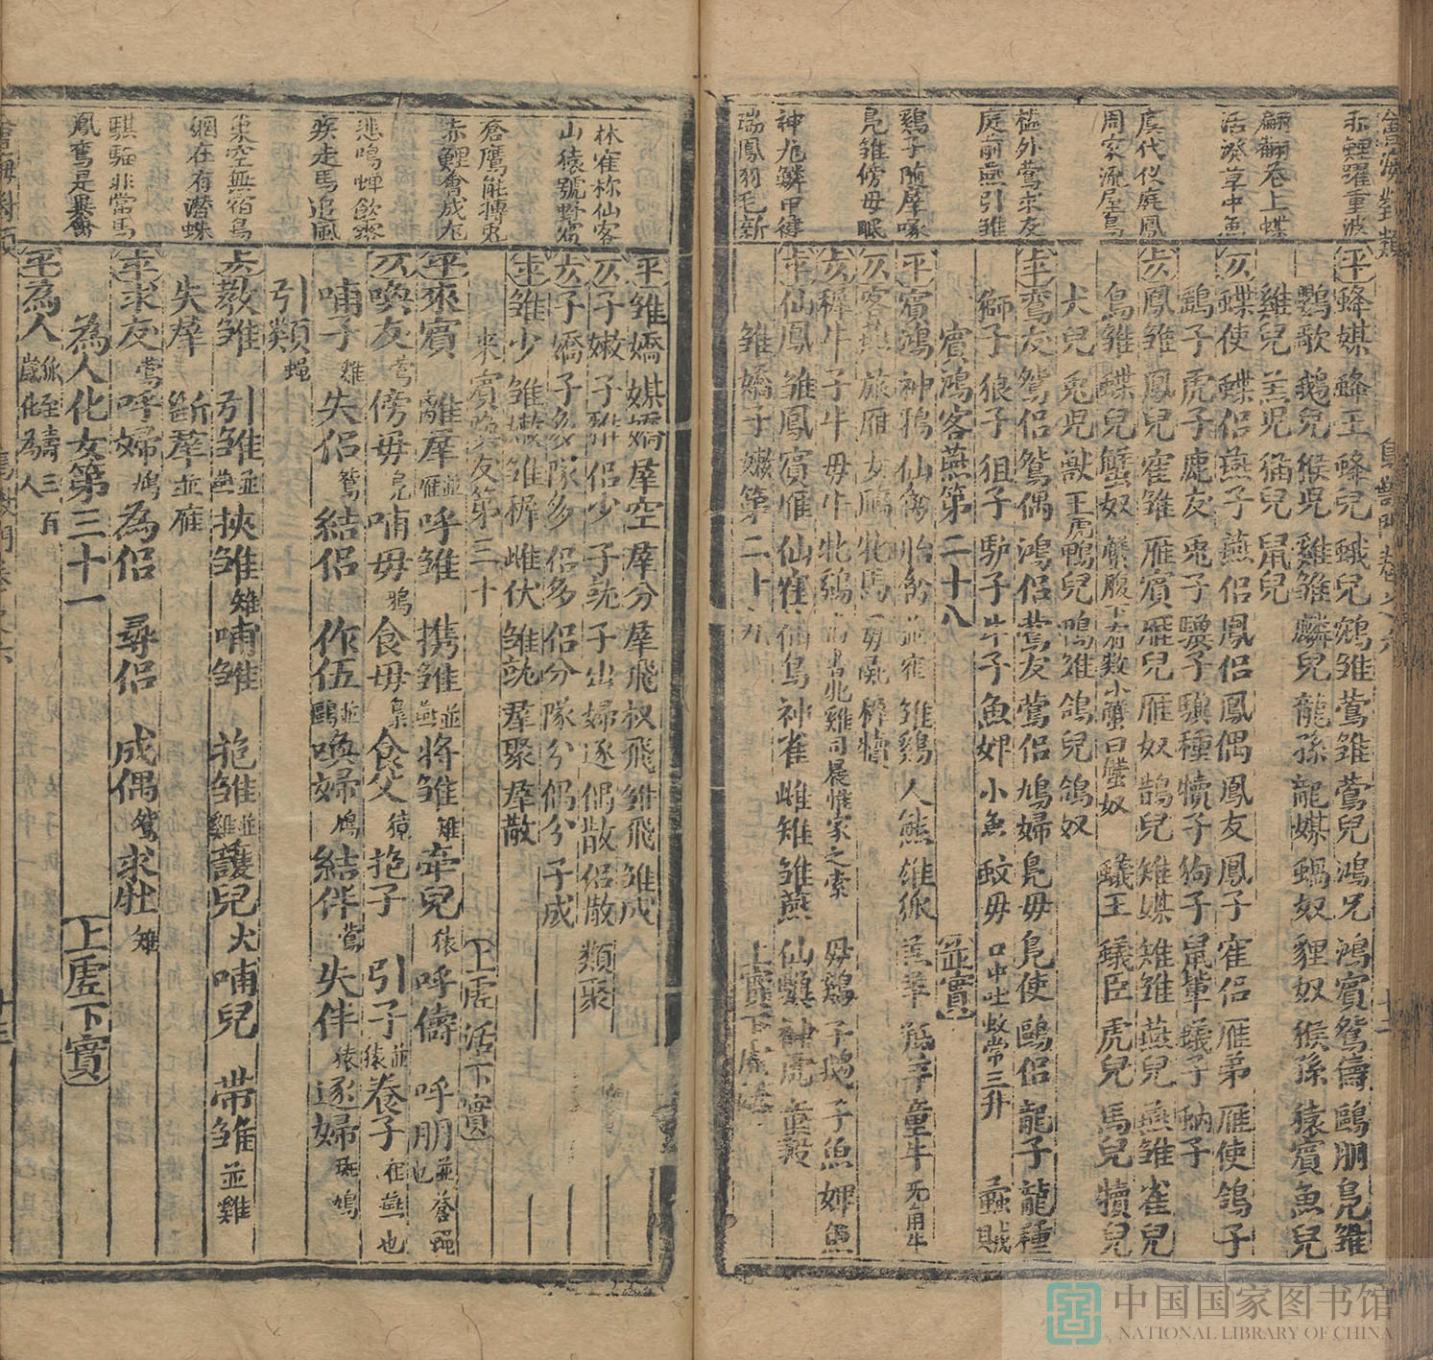 赤鯉躍重波
翩翩巷上蝶
活潑草中魚
虞代儀庭鳳
周家流屋烏
檻外鶯求友
庭前燕引雛
鷄子隨羣啄
鳧雛傍母眠
神龙鱗甲健
瑞鳳羽毛新
平 蜂媒 蜂王 蜂兒 蛾兒 鷄雛 鶯雛 鶯兒 鴻兄 鴻賓 鴛儔 鷗朋 鳧雛
鸚歌 鵝兒 猴兒 雞雛 麟兒 龍孫 龍媒 蝸奴 貍奴 猴孫 猿賓 魚兒
雞兒 羔兒 猫兒 鼠兒
仄 蝶使 蝶侶 燕子 燕侶 鳳侶 鳳偶 鳳友 鳳子 寉侶 雁弟 雁使 鴿子
鷂子 虎子 鹿友 兎子 驥子 驥種 犢子 狗子 鼠輩 蟻子 蚋子
去 鳳雛 鳳兒 寉雛 雁賓 雁兒 雁奴 鵲兒 雉媒 雉雛 燕兒 燕雛 雀兒
烏雛 蝶兒 蟹奴 蟹腹下有数小蟹曰蟹奴 蟻王 蟻臣 虎兒 馬兒 犢兒
犬兒 兎兒 獸王虎 鴨兒 鴨雛 鴿兒 鴿奴
平 鸞友 鴛侶 鴛偶 鴻侶 鶯友 鶯侶 鳩婦 鳧母 鳧使 鷗侶 龍子 龍種
獅子 狼子 狙子 驴子 牛子 魚婢小魚 蚊母口中吐蚊常三升 蟊賊
賓鴻客燕第二十八 並實
平 賓鴻 神鴉 仙禽 胎禽並寉 雛鷄 人熊 雄狐 羔羊 羝羊 童牛无角牛
仄 客燕 旅雁 女鴎 牝馬 母彘 稗犢
去 稗牛 子牛 母牛 牝鷄 母鷄 子鵝 子魚 婢魚
平 仙鳳 雛鳳 賓雁 仙寉 仙鳥 神雀 雌雉 雛燕 仙驥 神虎 童羖
雛嬌子嫩第二十九 上實下虛活
林寉称仙客
山猿號野賓
倉鷹能搏兎
赤鯉會成龙
悲鳴蟬飲露
疾走馬追風
巢空無宿鳥
洞在有潛蛛
騏驥非常馬
鳳鸞是異禽
平 雛嬌 媒嬌 羣空 羣分 羣飛 叔飛 雛飛 雛成
仄 子嫩 子稚 侶少 子㲉 子出 婦逐 偶散 侶散 類聚
去 子嬌 子多 隊多 侶多 侶分 隊分 偶分 子成
平 雛少 雛嫩 雛稺 雌伏 雛㲉 羣聚 羣散
來賓喚友第三十 上虛活下實
平 來賓 離羣並雁 呼雛 携雛並燕 將雛雉 牽兒猿 呼儔 呼朋並蒼蝇也
仄 喚友鶯 傍母鳧 哺母鴉 食母梟 食父獍 抱子 引子並猿 養子並燕也
哺子雉 失侶鴛 結侶 作伍並鷗 喚婦鳩 結伴鶯 失伴猿 逐婦斑鳩
引類蝇
去 教雛 引雛並燕 挾雛雉 哺雛 菢雛並雞 護兒犬 哺兒 带雛並雞
失羣 斷羣並雁
平 求友鶯 呼婦鳩 為侶 尋侶 成偶鴛 求牡雉
為人化女第三十一 上虛下實
平 為人狐至壽三百歲化為人